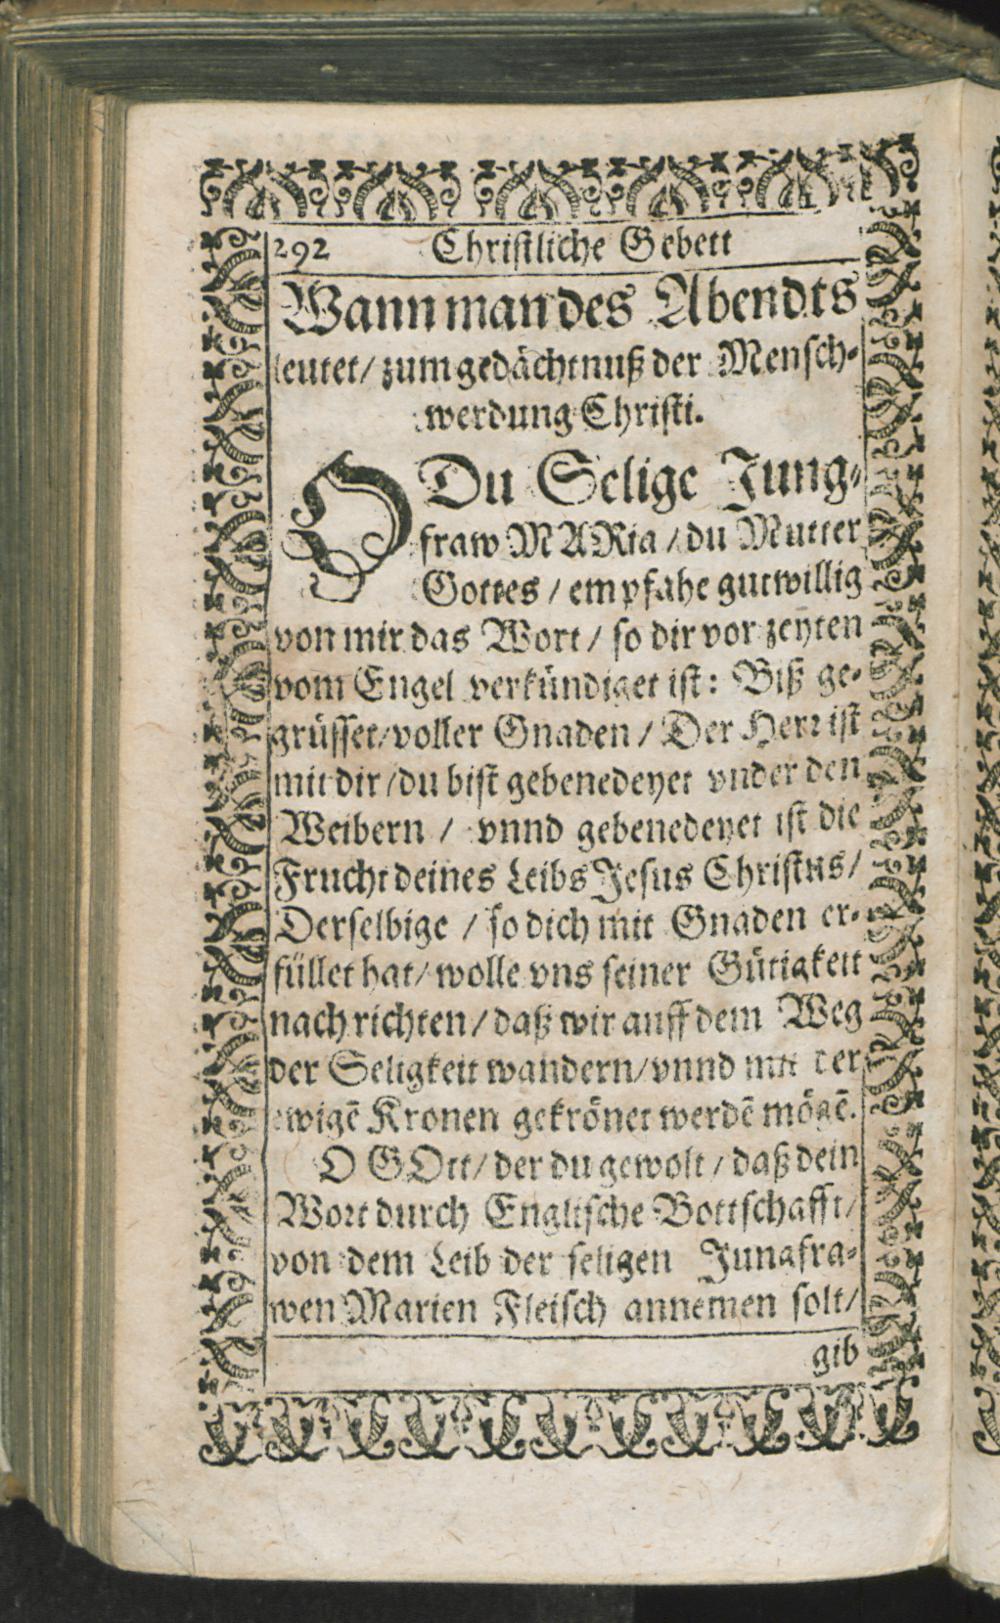 292 Christliche Gebett
Wann man des Abendts
leutet / zum gedächtnuß der Mensch-
werdung Christi.
O Du Selige Jung-
fraw MARia / du Mutter
Gottes / empfahe gutwillig
von mir das Wort / so dir vor zeyten
vom Engel verkündiget ist: Biß ge-
grüsset / voller Gnaden / Der Herr ist
mit dir / du bist gebenedeyet vnder den
Weibern / vnnd gebenedeyet ist die
Frucht deines Leibs Jesus Christus /
Derselbige / so dich mit Gnaden er-
füllet hat / wolle vns seiner Gütigkeit
nach richten / daß wir auff dem Weg
der Seligkeit wandern / vnnd mit der
ewigē Kronen gekrönet werdē mögē.
O GOtt / der du gewolt / daß dein
Wort durch Englische Bottschafft /
von dem Leib der seligen Jungfra-
wen Marien Fleisch annemen solt /
gib